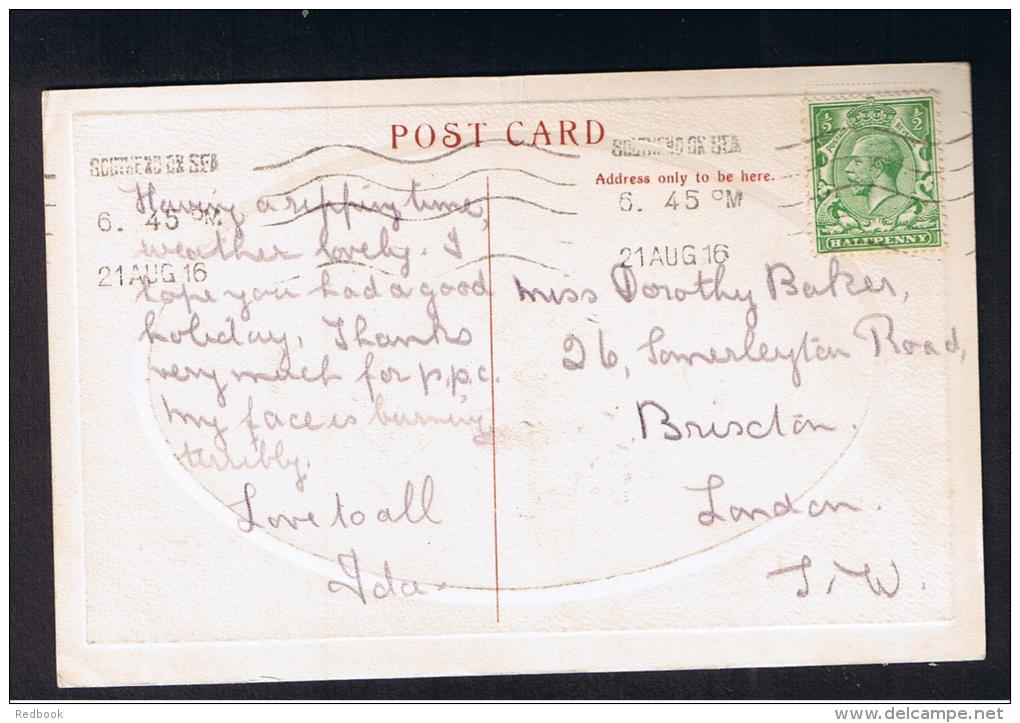 POST CARD
Address only to be here.
SOUTHEND ON SEA
6. 45 PM
21 AUG 16
SOUTHEND ON SEA
6. 45 PM
21 AUG 16
½ ½
POSTAGE REVENUE
HALFPENNY
Having a ripping time,
weather lovely. I
hope you had a good
holiday. Thanks
very much for p.p.c.
My face is burning
terribly.
Love to all
Ida
Miss Dorothy Baker,
26, Somerleyton Road,
Brixton.
London.
S.W.
Redbook
www.delcampe.net